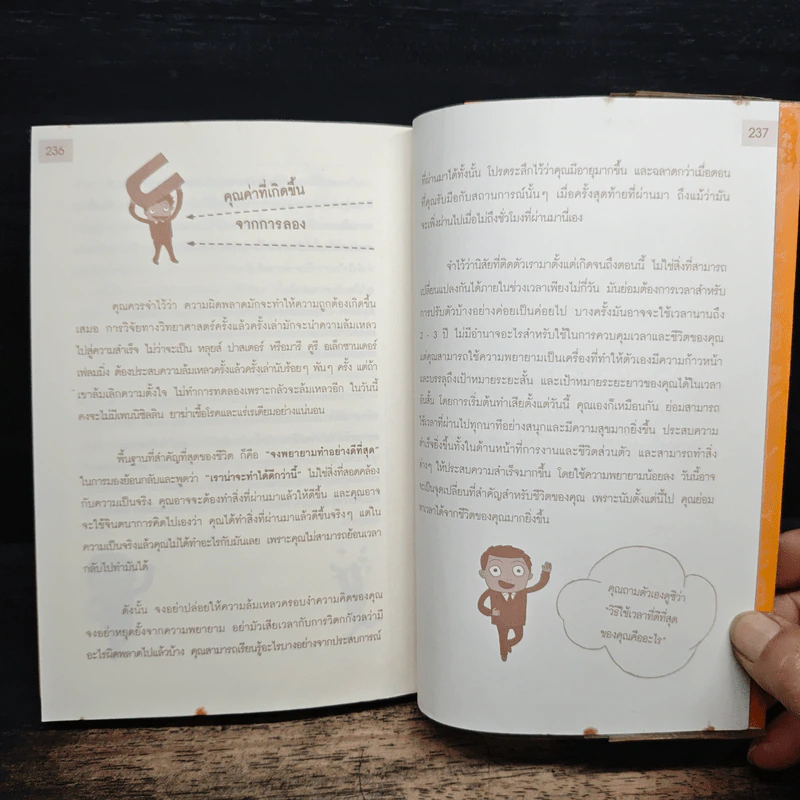 236
คุณค่าที่เกิดขึ้น
จากการลอง
คุณควรจำไว้ว่า ความผิดพลาดมักจะทำให้ความถูกต้องเกิดขึ้น
เสมอ การวิจัยทางวิทยาศาสตร์ครั้งแล้วครั้งเล่ามักจะนำความล้มเหลว
ไปสู่ความสำเร็จ ไม่ว่าจะเป็น หลุยส์ ปาสเตอร์ หรือมารี คูรี อเล็กซานเดอร์
เฟลมมิ่ง ต้องประสบความล้มเหลวครั้งแล้วครั้งเล่านับร้อยๆ พันๆ ครั้ง แต่ถ้า
เขาล้มเลิกความตั้งใจ ไม่ทำการทดลองเพราะกลัวจะล้มเหลวอีก ในวันนี้
คงจะไม่มีเพนนิซิลลิน ยาฆ่าเชื้อโรคและแร่เรเดียมอย่างแน่นอน
พื้นฐานที่สำคัญที่สุดของชีวิต ก็คือ "จงพยายามทำอย่างดีที่สุด"
ในการมองย้อนกลับและพูดว่า "เราน่าจะทำได้ดีกว่านี้" ไม่ใช่สิ่งที่สอดคล้อง
กับความเป็นจริง คุณอาจจะต้องทำสิ่งที่ผ่านมาแล้วให้ดีขึ้น และคุณอาจ
จะใช้จินตนาการคิดไปเองว่า คุณได้ทำสิ่งที่ผ่านมาแล้วดีขึ้นจริงๆ แต่ใน
ความเป็นจริงแล้วคุณไม่ได้ทำอะไรกับมันเลย เพราะคุณไม่สามารถย้อนเวลา
กลับไปทำมันได้
ดังนั้น จงอย่าปล่อยให้ความล้มเหลวครอบงำความคิดของคุณ
จงอย่าหยุดยั้งจากความพยายาม อย่ามัวเสียเวลากับการวิตกกังวลว่ามี
อะไรผิดพลาดไปแล้วบ้าง คุณสามารถเรียนรู้อะไรบางอย่างจากประสบการณ์
237
ที่ผ่านมาได้ทั้งนั้น โปรดระลึกไว้ว่าคุณมีอายุมากขึ้น และฉลาดกว่าเมื่อตอน
ที่คุณรับมือกับสถานการณ์นั้นๆ เมื่อครั้งสุดท้ายที่ผ่านมา ถึงแม้ว่ามัน
จะเพิ่งผ่านไปเมื่อไม่ถึงชั่วโมงที่ผ่านมานี่เอง
จำไว้ว่านิสัยที่ติดตัวเรามาตั้งแต่เกิดจนถึงตอนนี้ ไม่ใช่สิ่งที่สามารถ
เปลี่ยนแปลงกันได้ภายในช่วงเวลาเพียงไม่กี่วัน มันย่อมต้องการเวลาสำหรับ
การปรับตัวบ้างอย่างค่อยเป็นค่อยไป บางครั้งมันอาจจะใช้เวลานานถึง
2 - 3 ปี ไม่มีอำนาจอะไรสำหรับใช้ในการควบคุมเวลาและชีวิตของคุณ
แต่คุณสามารถใช้ความพยายามเป็นเครื่องที่ทำให้ตัวเองมีความก้าวหน้า
และบรรลุถึงเป้าหมายระยะสั้น และเป้าหมายระยะยาวของคุณได้ในเวลา
อันสั้น โดยการเริ่มต้นทำเสียตั้งแต่วันนี้ คุณเองก็เหมือนกัน ย่อมสามารถ
ใช้เวลาที่ผ่านไปทุกนาทีอย่างสนุกและมีความสุขมากยิ่งขึ้น ประสบความ
สำเร็จยิ่งขึ้นทั้งในด้านหน้าที่การงานและชีวิตส่วนตัว และสามารถทำสิ่ง
ต่างๆ ให้ประสบความสำเร็จมากขึ้น โดยใช้ความพยายามน้อยลง วันนี้อาจ
จะเป็นจุดเปลี่ยนที่สำคัญสำหรับชีวิตของคุณ เพราะนับตั้งแต่นี้ไป คุณย่อม
หาเวลาได้จากชีวิตของคุณมากยิ่งขึ้น
คุณถามตัวเองดูซิว่า
"วิธีใช้เวลาที่ดีที่สุด
ของคุณคืออะไร"